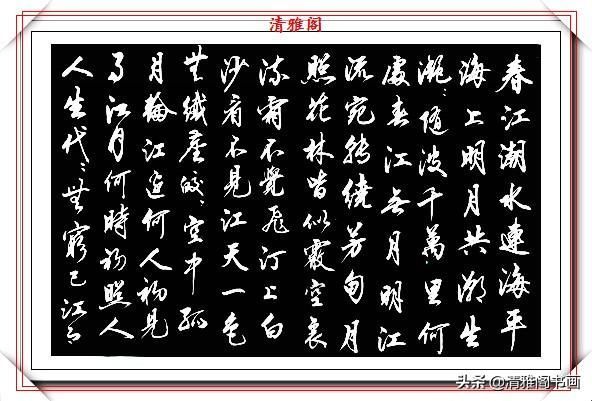 清雅阁
春江潮水連海平
海上明月共潮生
灩〻随波千萬里何
處春江無月明江
流宛轉繞芳甸月
照花林皆似霰空裏
流霜不覺飛汀上白
沙看不見江天一色
無纖塵皎〻空中孤
月輪江邊何人初見
月江月何時初照人
人生代〻無窮已江月
头条@清雅阁书画